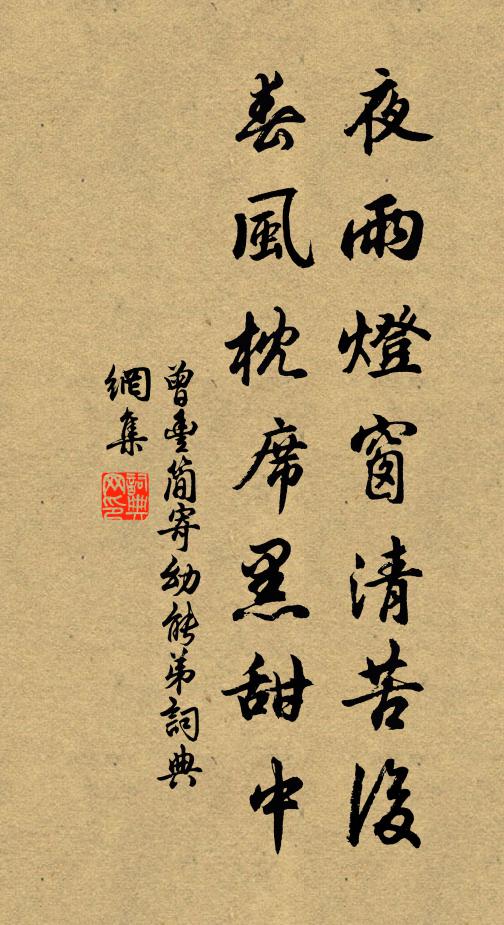 夜雨燈窗清苦後
春風枕席黑甜中
曾豐簡寄幼能弟詞典
網集
詞典網印